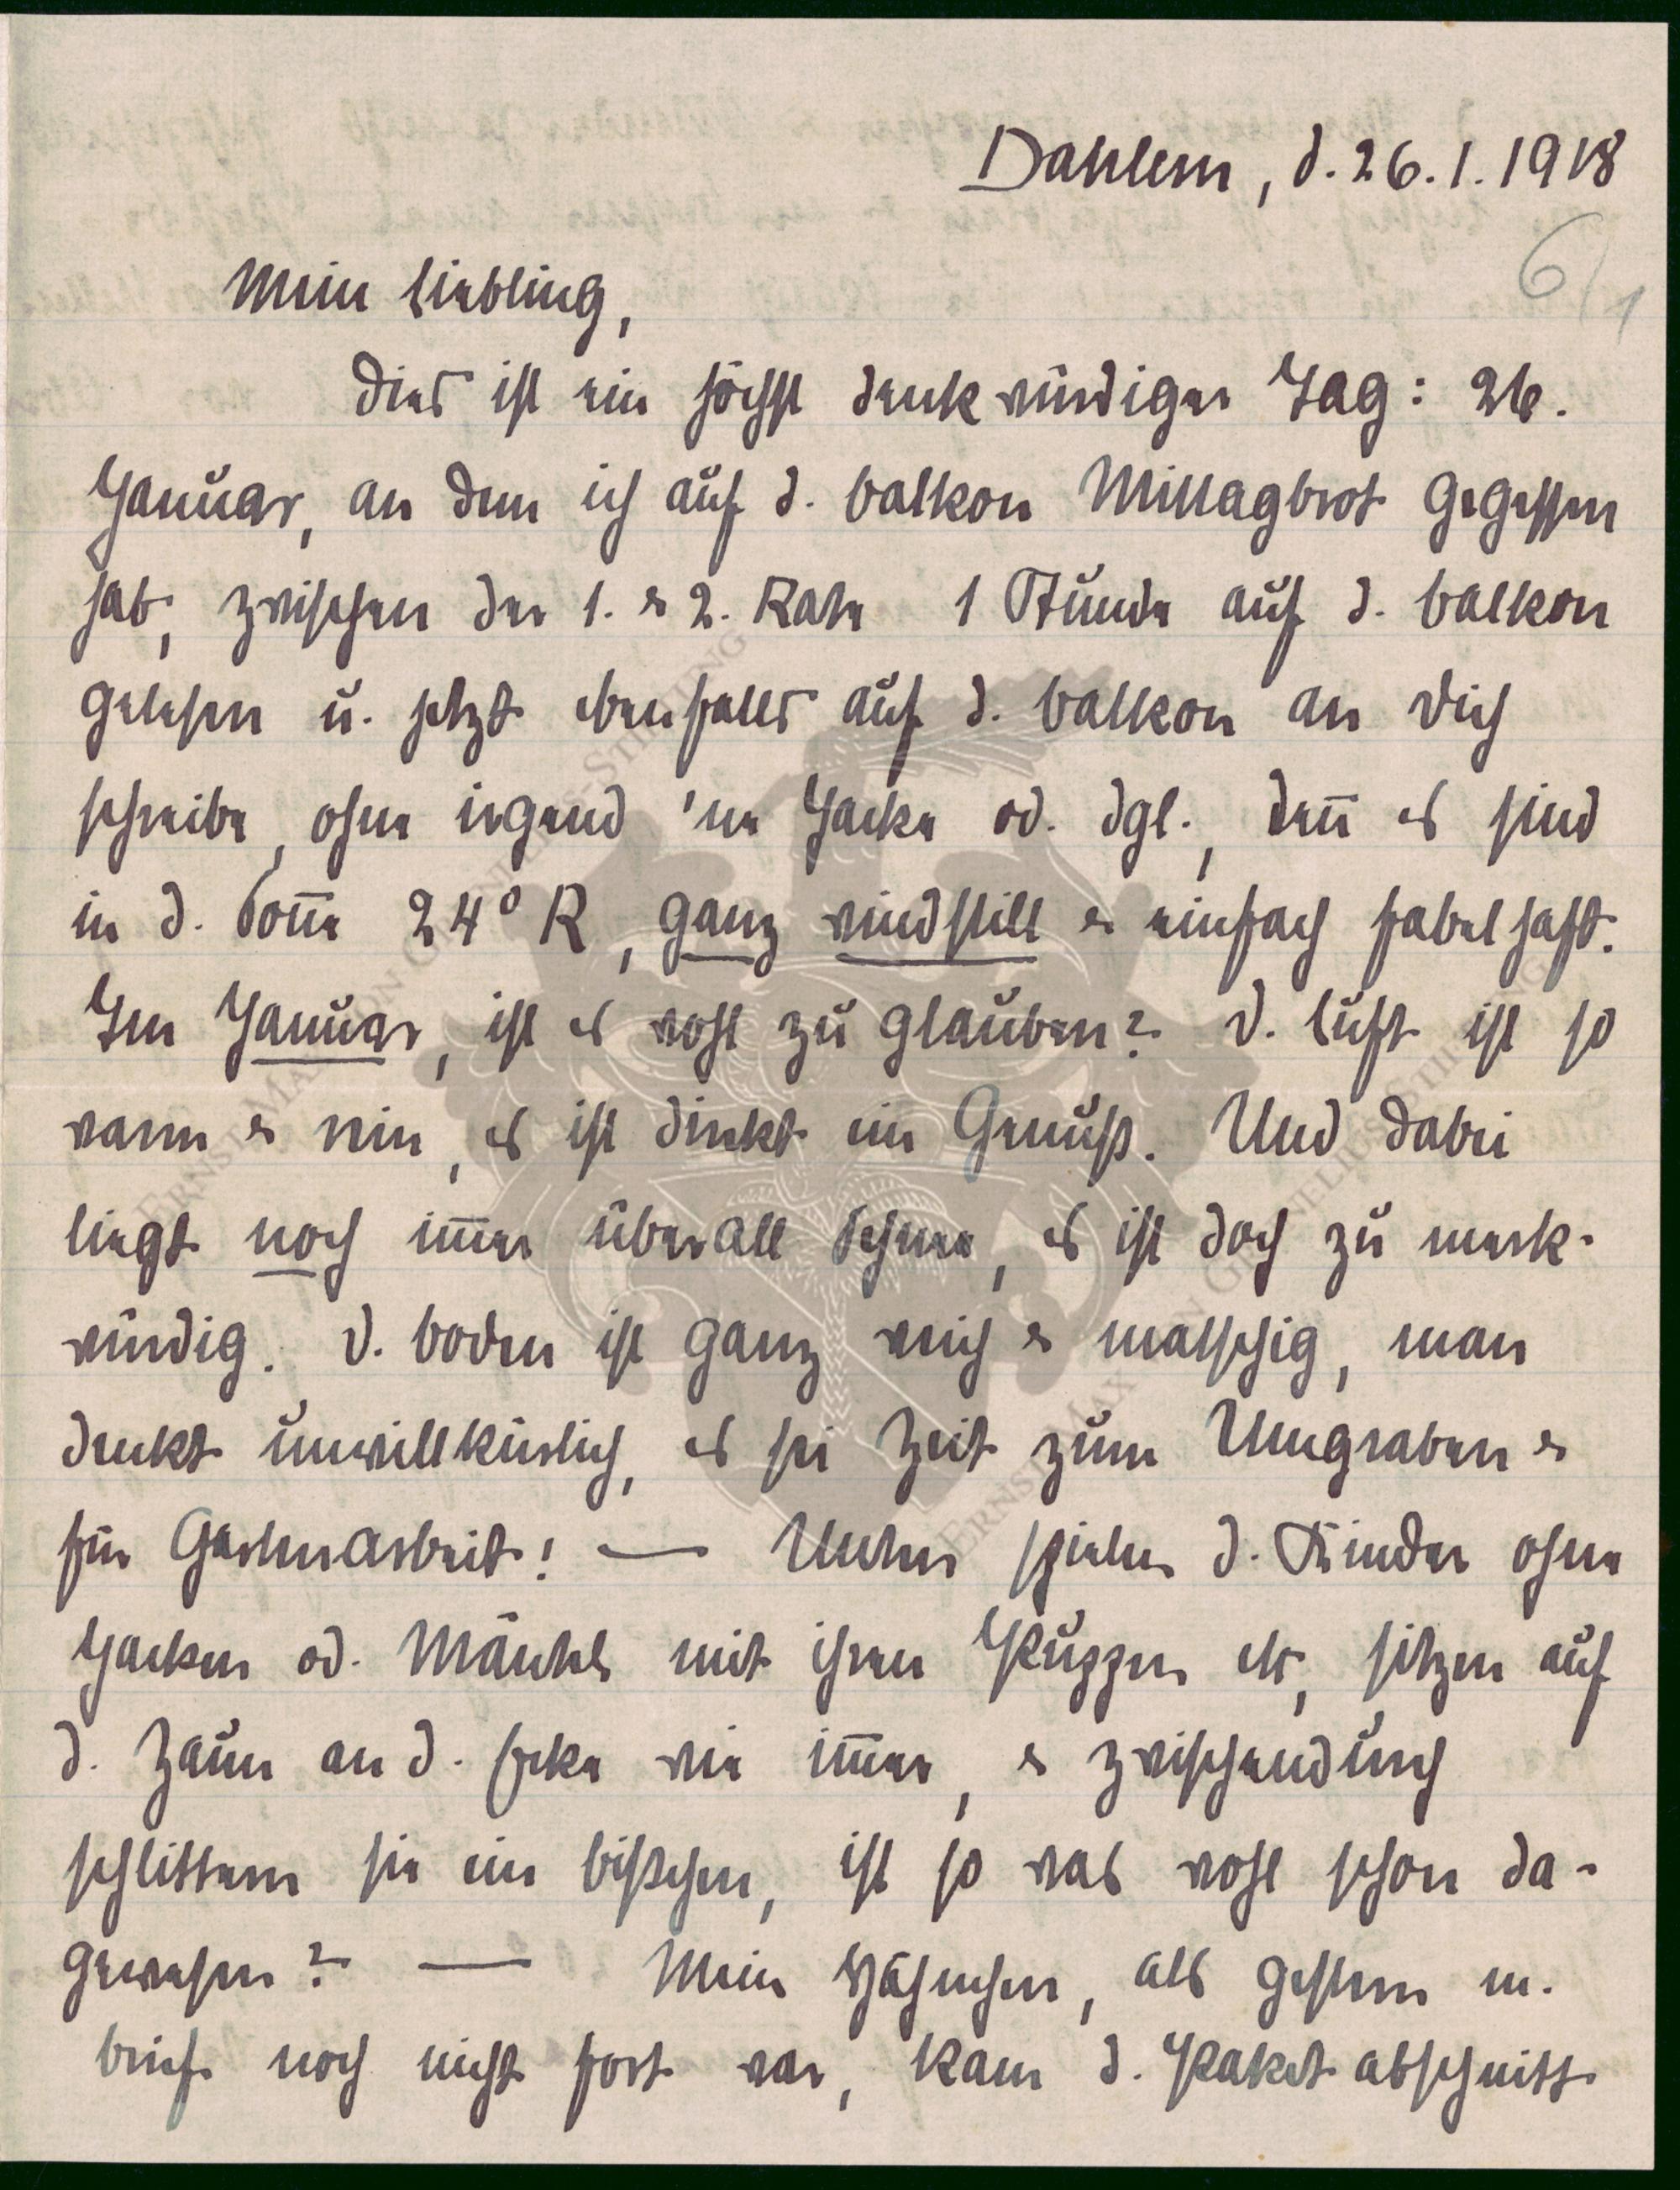 Dahlem, d. 26.1.1918
6/1
Mein Liebling,
Dies ist ein höchst denkwürdiger Tag: 26.
Januar, an dem ich auf d. Balkon Mittagbrot gegessen
hab, zwischen der 1. & 2. Rate 1 Stunde auf d. Balkon
gelesen u. jetzt ebenfalls auf d. Balkon an Dich
schreibe, ohne irgend 'ne Jacke od. dgl., den̅ es sind
in d. Son̅e 24° R, ganz windstill & einfach fabelhaft.
Im Januar, ist es wohl zu glauben? D. Luft ist so
warm & rein, es ist direkt ein Genuß. Und dabei
liegt noch im̅er überall Schnee, es ist doch zu merk-
würdig. D. Boden ist ganz weich & matschig, man
denkt unwillkürlich, es sei Zeit zum Umgraben &
für Gartenarbeit! — Unten spielen d. Kinder ohne
Jacken od. Mäntel mit ihren Puppen etc, sitzen auf
d. Zaun an d. Ecke wie im̅er, & zwischendurch
schlittern sie ein bißchen, ist so was wohl schon da-
gewesen? — Mein Hähnchen, als gestern m.
Brief noch nicht fort war, kam d. Paketabschnitt
ERNST MAX VON GRUNELIUS-STIFTUNG
ERNST MAX VON GRUNELIUS-STIFTUNG